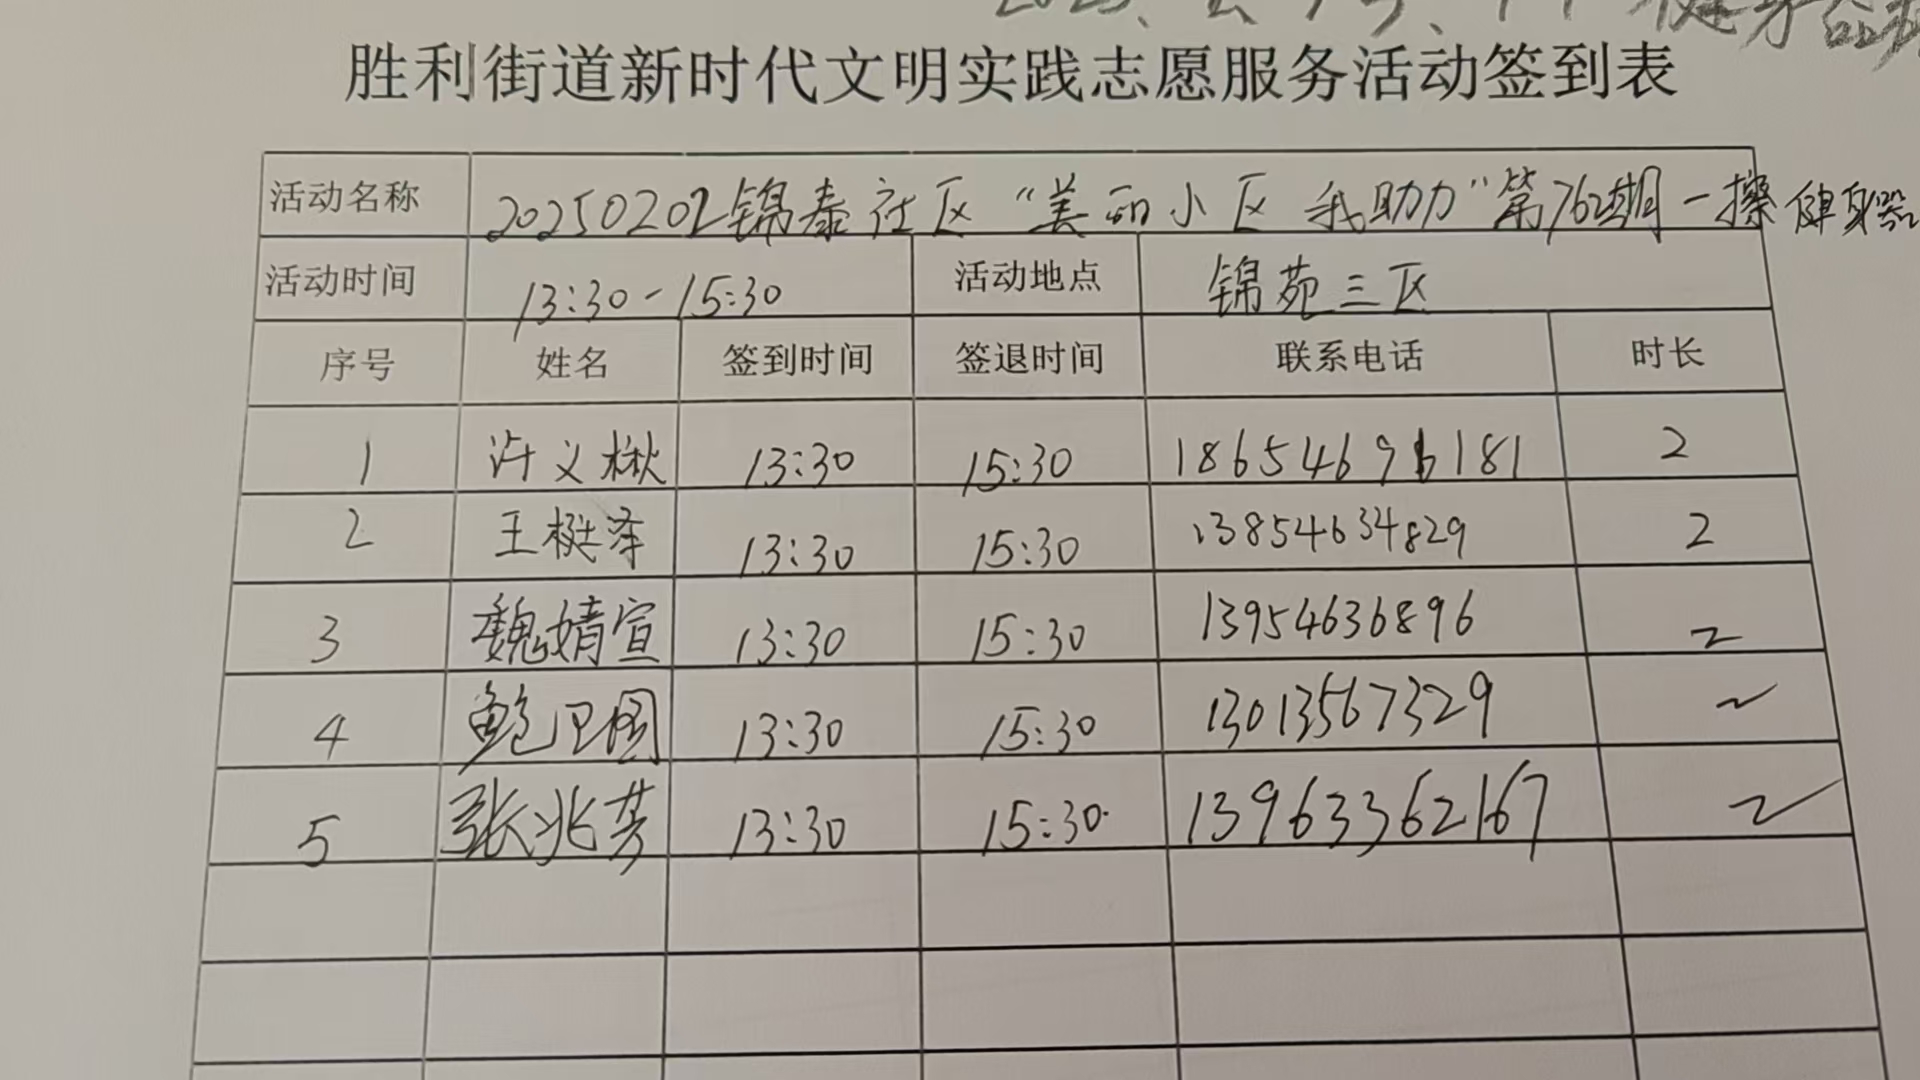 胜利街道新时代文明实践志愿服务活动签到表
活动名称 20250202锦泰社区“美丽小区 我助力”第762期-擦健身器
活动时间 13:30-15:30 活动地点 锦苑三区
序号 姓名 签到时间 签退时间 联系电话 时长
1 许义楸 13:30 15:30 18654696181 2
2 王梃泽 13:30 15:30 13854634829 2
3 魏婧宣 13:30 15:30 13954636896 2
4 鲍卫国 13:30 15:30 13013567329 2
5 张兆芳 13:30 15:30 13963362167 2